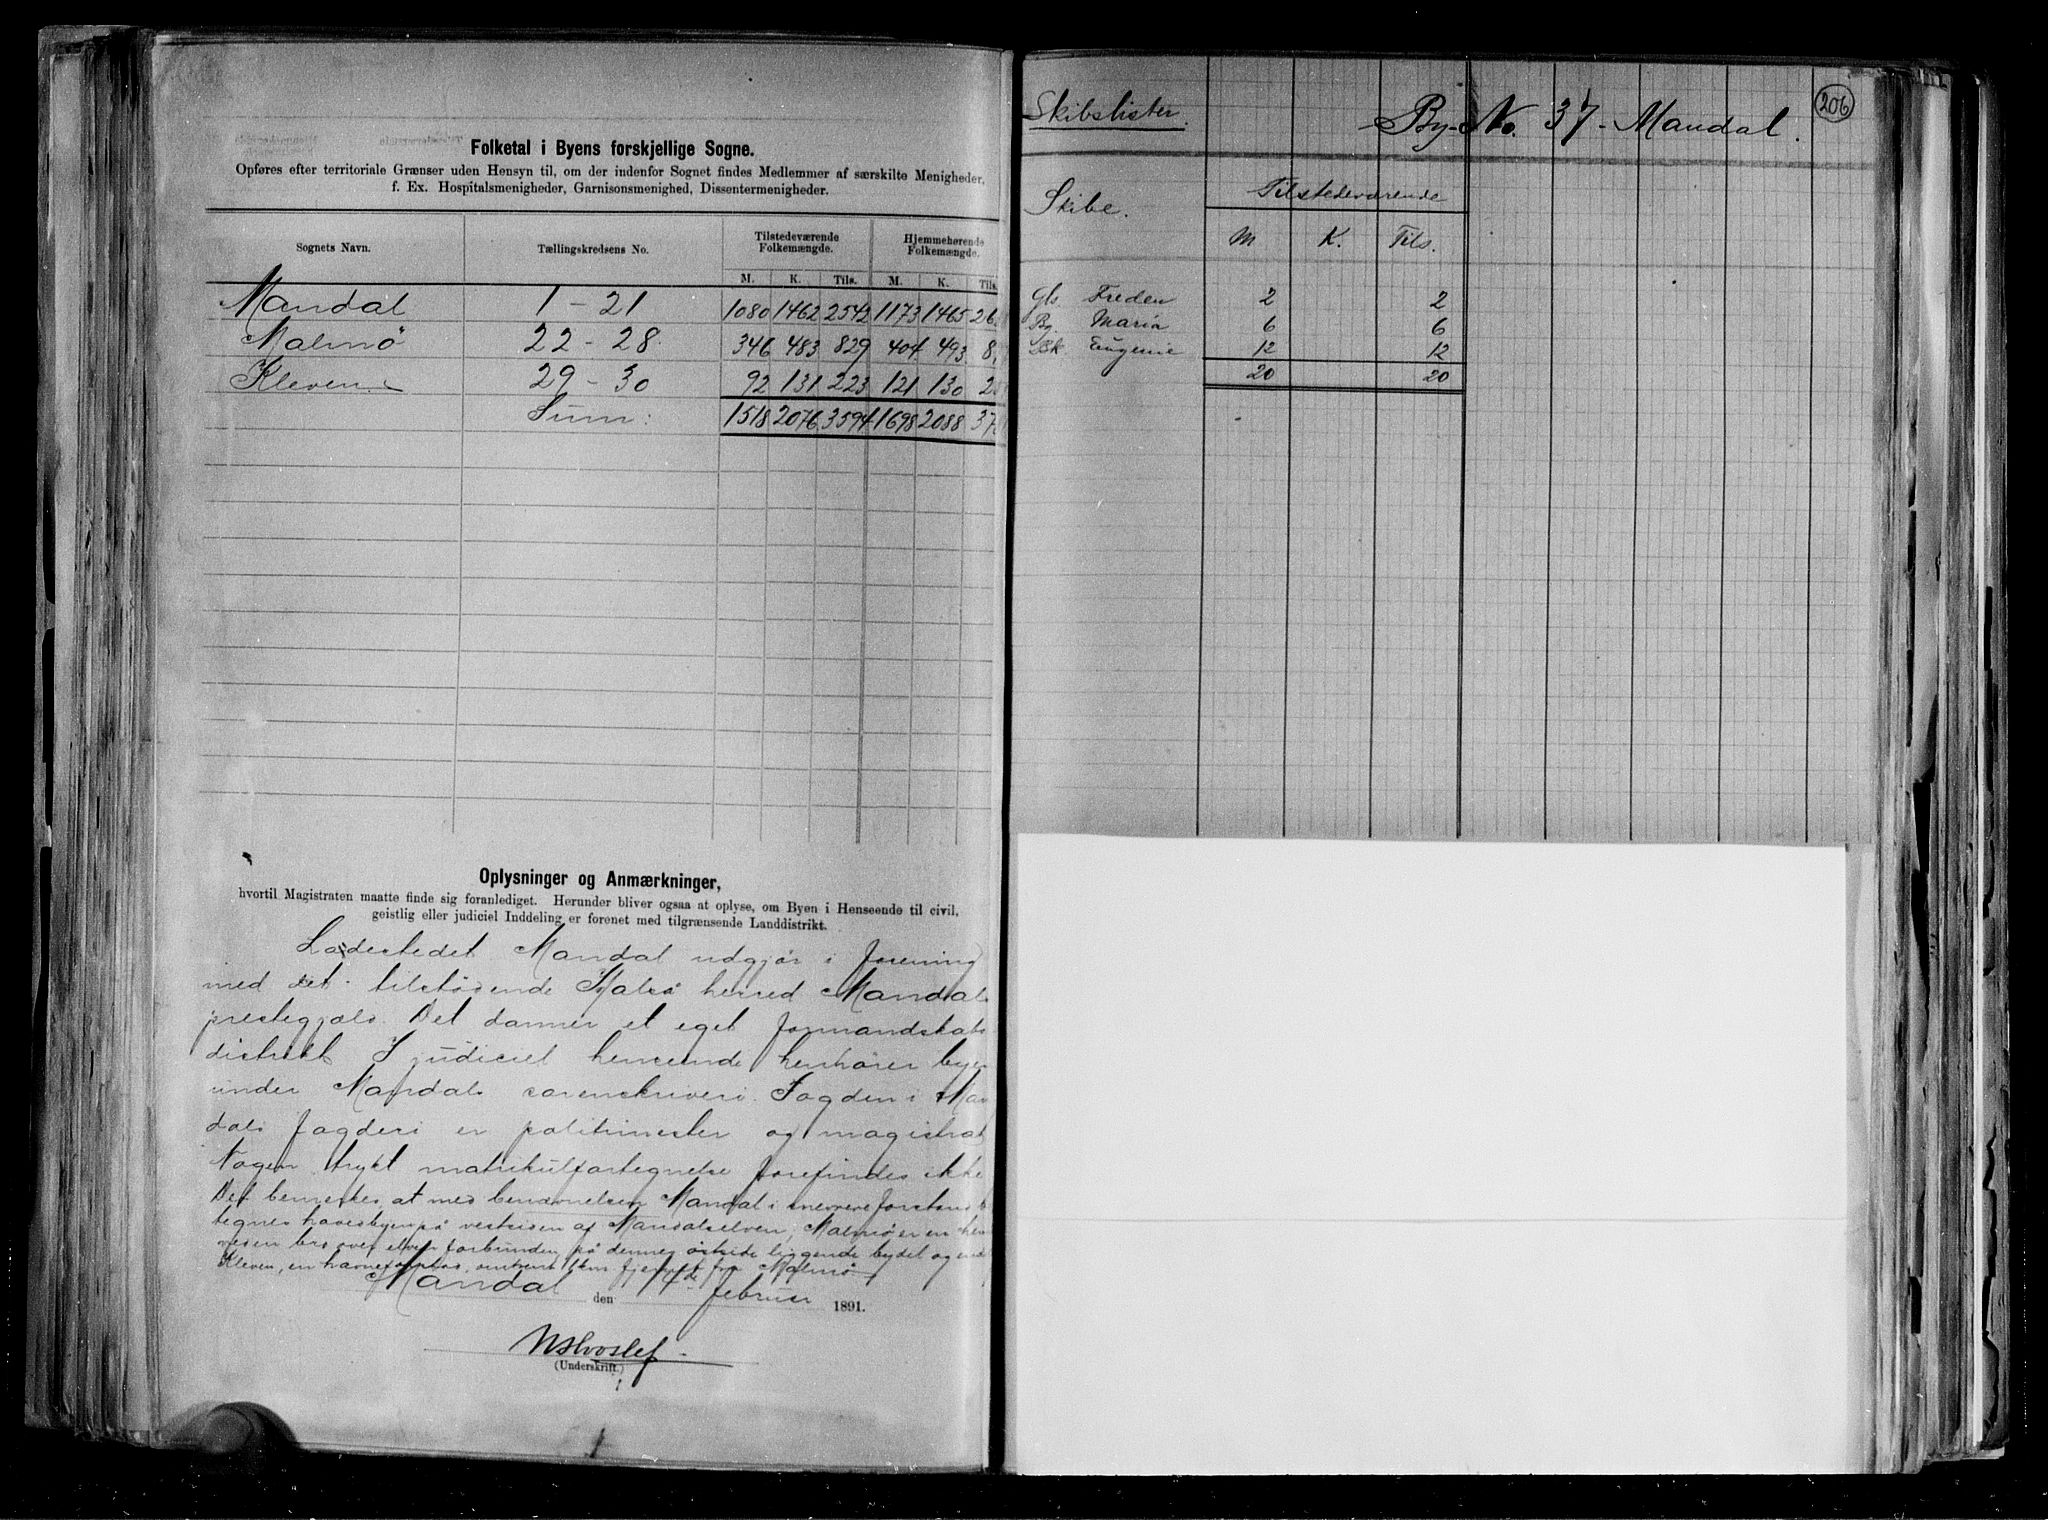 Folketal i Byens forskjellige Sogne.
Opføres efter territoriale Grænser uden Hensyn til, om der indenfor Sognet findes Medlemmer af særskilte Menigheder,
f. Ex. Hospitalsmenigheder, Garnisonsmenighed, Dissentermenigheder.
Sognets Navn. Tællingskredsens No. Tilstedeværende Folkemængde. Hjemmehørende Folkemængde.
M. K. Tils. M. K. Tils.
Mandal 1 - 21 1080 1462 2542 1173 1465 26
Malmø 22 - 28 346 483 829 404 493 8
Kleven 29 - 30 92 131 223 121 130 2
Sum: 1518 2076 3594 1698 2088 37
Oplysninger og Anmærkninger,
hvortil Magistraten maatte finde sig foranlediget. Herunder bliver ogsaa at oplyse, om Byen i Henseende til civil,
geistlig eller judiciel Inddeling er forenet med tilgrænsende Landdistrikt.
Ladestedet Mandal udgjør i forening
med det tilstødende Halså herred Mandals
prestegjæld. Det danner et eget formandskabs
distrikt. I judiciel henseende henhører byen
under Mandals sorenskriveri. Fogden i Man
dals fogderi er politimester og magistrat
Nogen trykt matrikulfortegnelse forefindes ikke
Det bemerkes, at med benævnelsen Mandal i snevrere forstand be
tegnes hovedbyen på vestsiden af Mandalselven, Malmø er en
ved en bro over elven forbunden, på dennes østside liggende bydel og
Kleven, en havneforstad, omtrent 1 km fjernet fra Malmø
Mandal den 14de februar 1891.
(Underskrift.)
206
Skibslister. By No. 37 - Mandal.
Skibe. Tilstedeværende
M K. Tils.
Gls. Freden 2 2
Bg. Maria 6 6
Sk. Eugenie 12 12
20 20